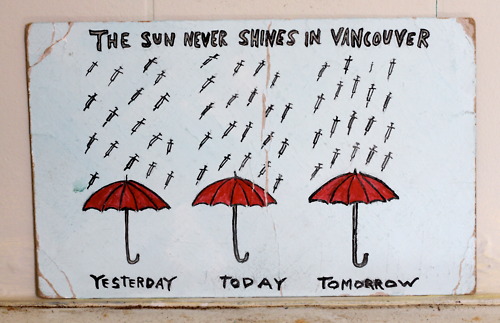 THE SUN NEVER SHINES IN VANCOUVER
YESTERDAY TODAY TOMORROW